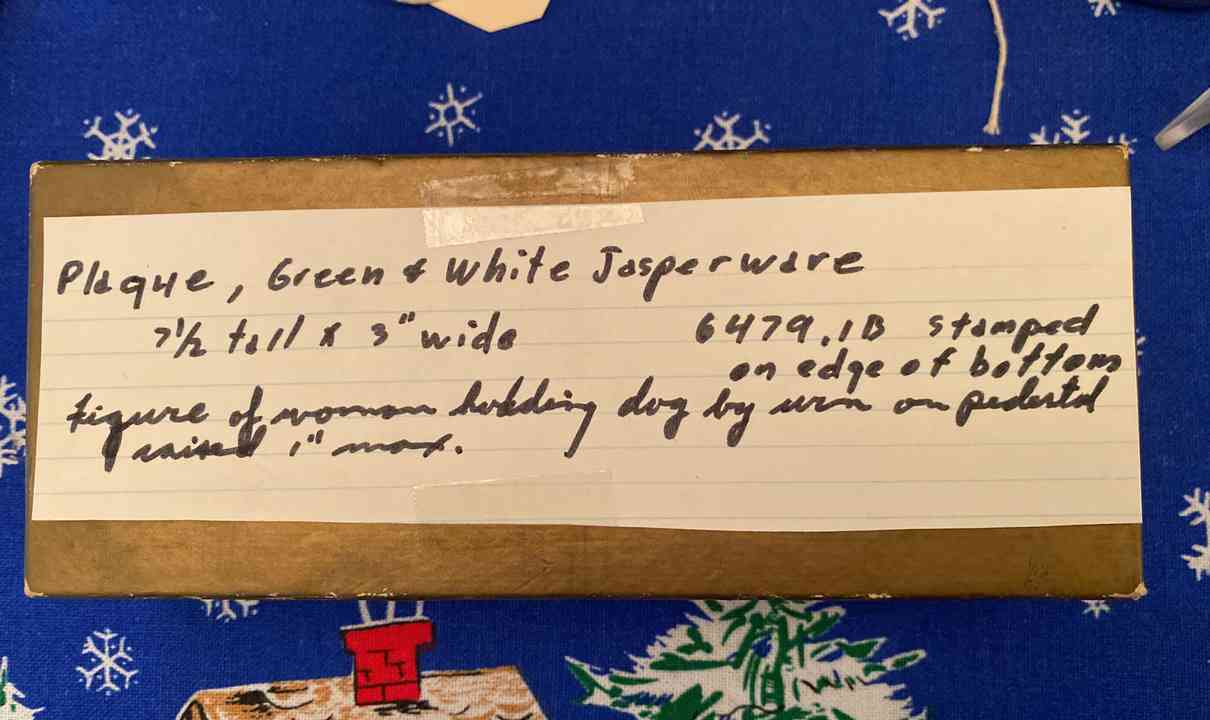 Plaque, Green & White Jasperware
7½ tall x 3" wide
6479.1B stamped
on edge of bottom
figure of woman holding dog by urn on pedestal
raised 1" max.